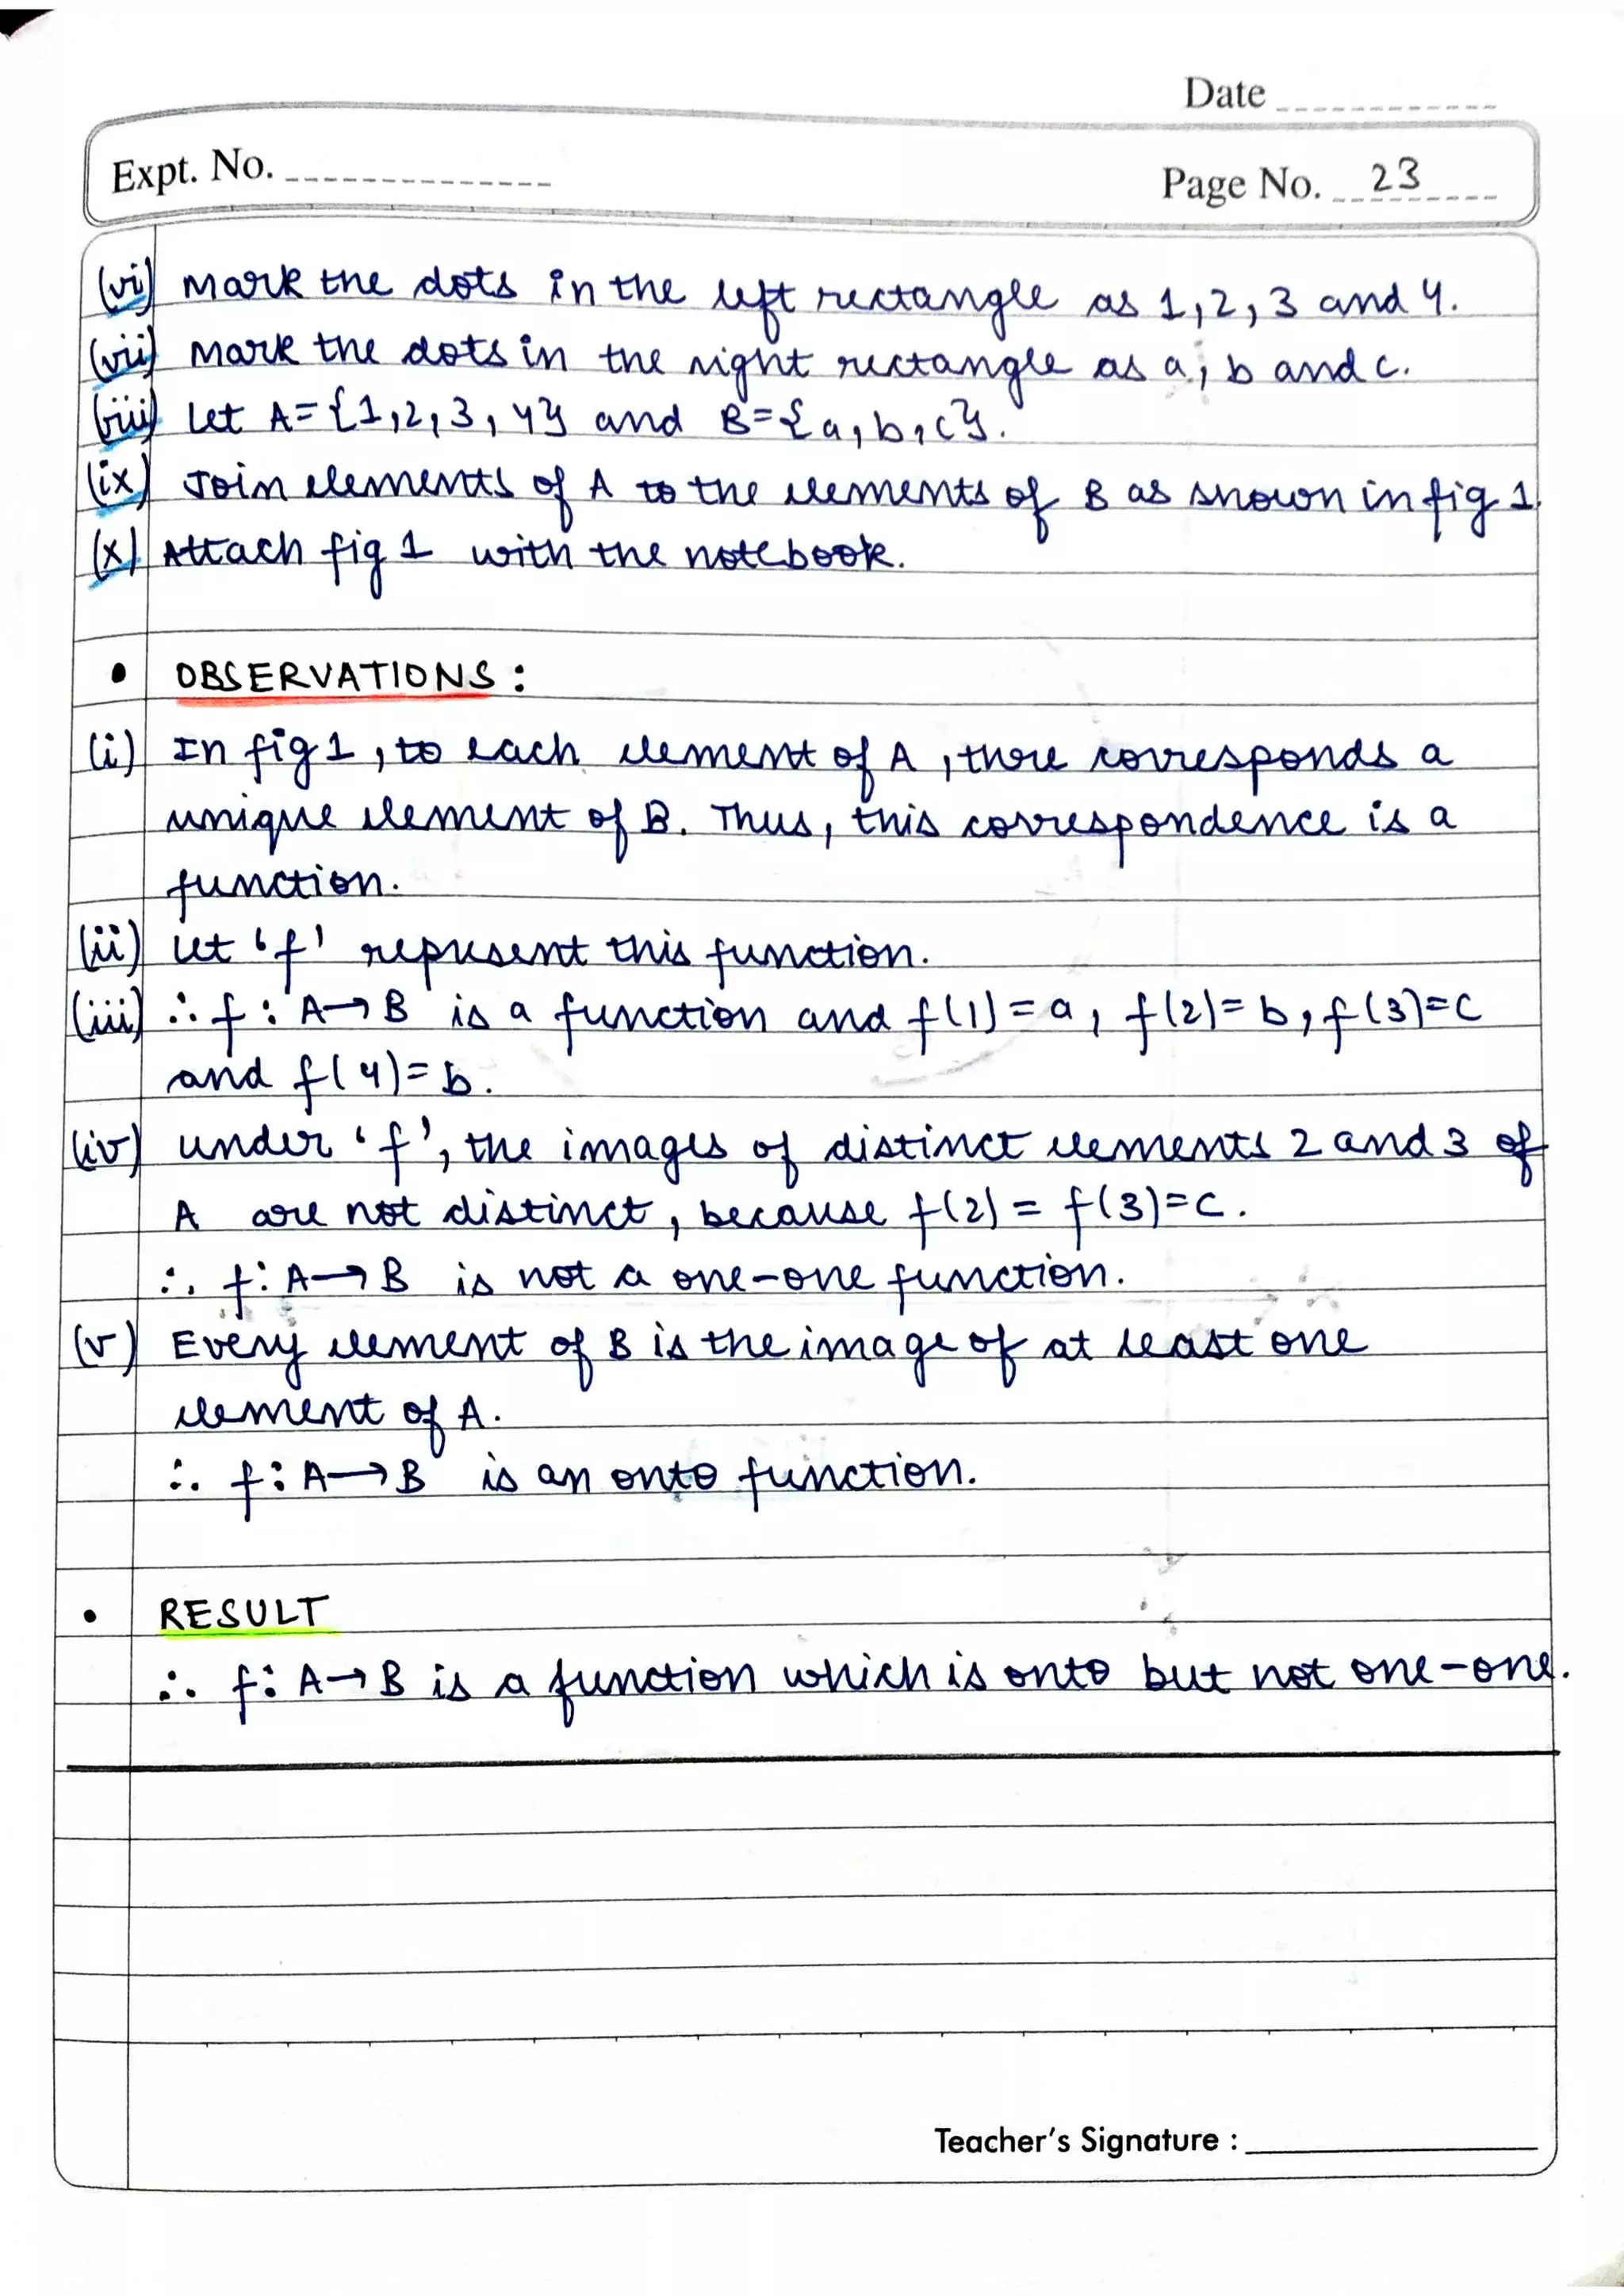 Date
Expt. No.
Page No. 23
(vi) Mark the dots in the left rectangle as 1, 2, 3 and 4.
(vii) Mark the dots in the right rectangle as a, b and c.
(viii) Let A={1,2,3,4} and B={a,b,c}.
(ix) Join elements of A to the elements of B as shown in fig 1.
(x) Attach fig 1 with the notebook.
• OBSERVATIONS :
(i) In fig 1, to each element of A, there corresponds a
unique element of B. Thus, this correspondence is a
function.
(ii) Let 'f' represent this function.
(iii) ∴ f : A→B is a function and f(1)=a, f(2)=b, f(3)=c
and f(4)=b.
(iv) under 'f', the images of distinct elements 2 and 3 of
A are not distinct, because f(2) = f(3)=c.
∴ f: A→B is not a one-one function.
(v) Every element of B is the image of at least one
element of A.
∴ f: A→B is an onto function.
• RESULT
∴ f: A→B is a function which is onto but not one-one.
Teacher's Signature :